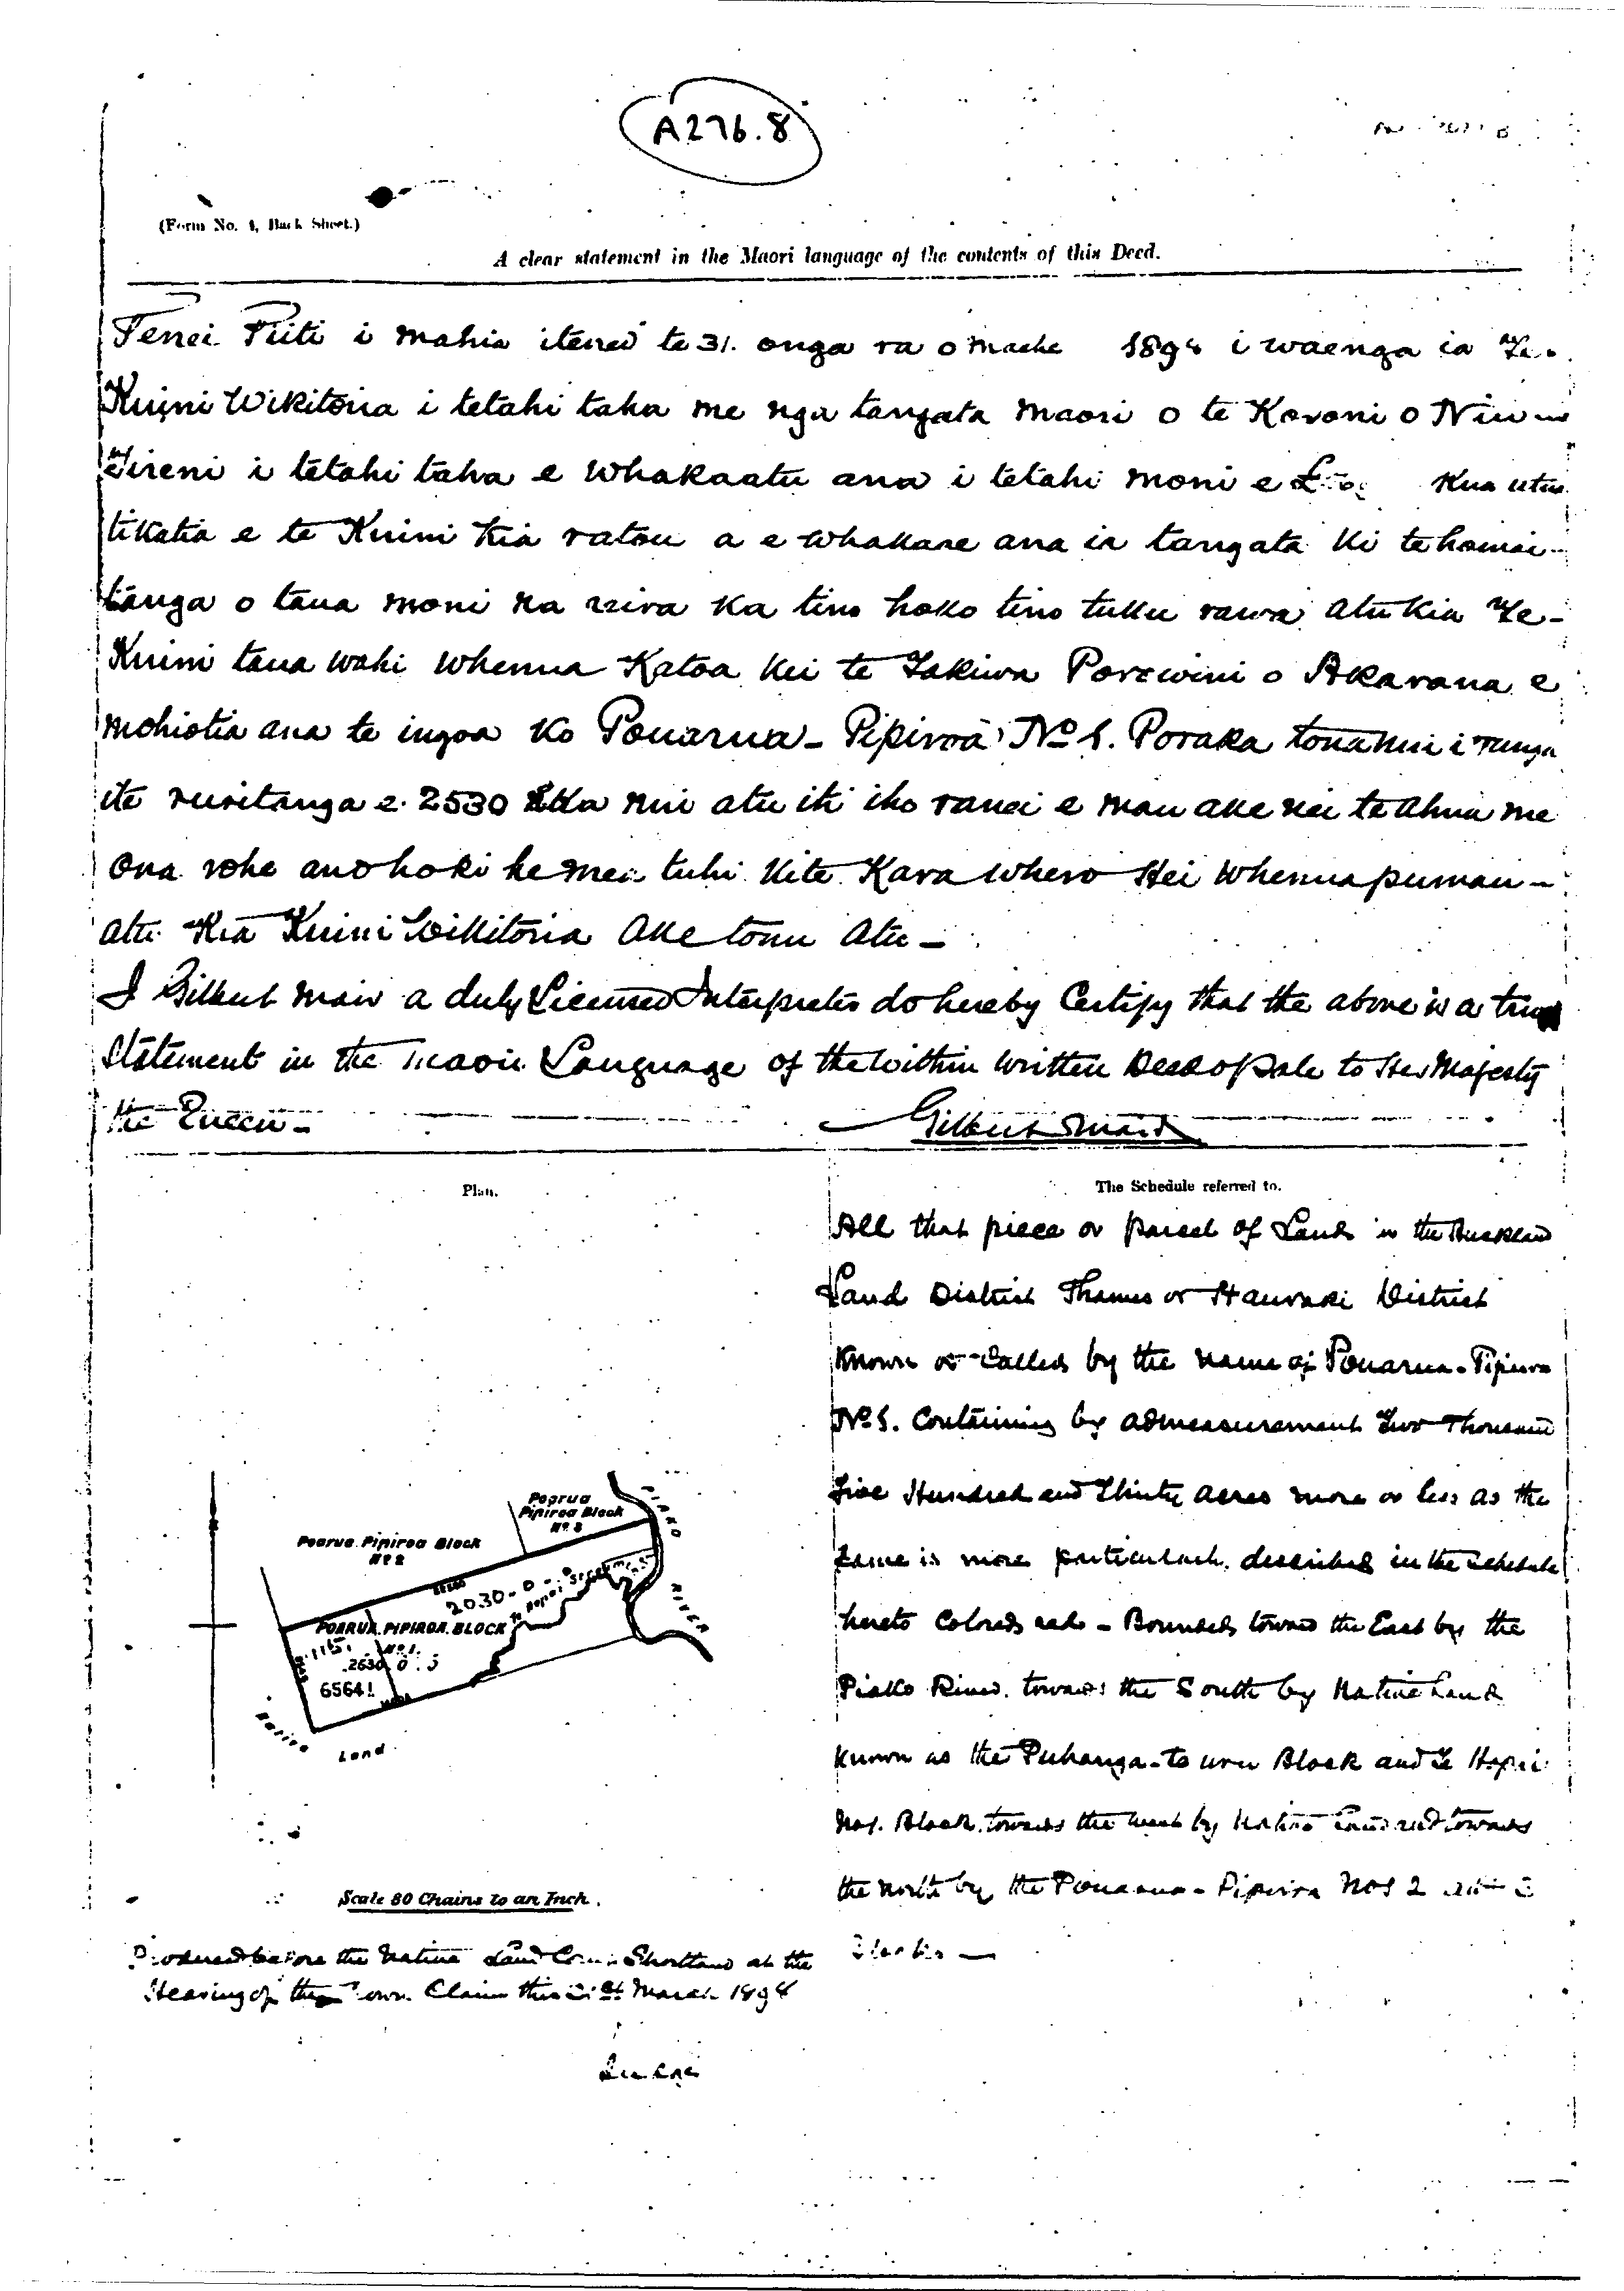 A276.8
(Form No. 4, Back Sheet.)
A clear statement in the Maori language of the contents of this Deed.
Tenei Tiiti i mahia itenei te 31. onga ra o Maehe 1898 i waenga ia Te
Kuini Wikitoria i tetahi taha me nga tangata Maori o te Koroni o Niu
Tireni i tetahi taha e Whakaatu ana i tetahi moni e £ Kua utua
tikatia e te Kuini kia ratou a e whakaae ana ia tangata ki te homai-
tanga o taua moni na reira ka tino hoko tino tuku rawa atu kia Te-
Kuini taua wahi whenua Katoa kei te Takiwa Porowini o Akarana e
mohiotia ana te ingoa ko Pouarua-Pipiroa No 1. Poraka tona nui i runga
ite ruritanga e 2530 Eka nui atu iti iho ranei e mau ake nei te ahua me
Ona rohe ano hoki he mea tuhi kite Kara whero Hei whenua pumau-
atu kia Kuini Wikitoria Ake tonu atu -
I Gilbert Mair a duly Licensed Interpreter do hereby Certify that the above is a true
Statement in the Maori Language of the within written Deed of Sale to Her Majesty
the Queen -
Gilbert Mair
Plan.
The Schedule referred to.
All that piece or parcel of Land in the Auckland
Land District Thames or Hauraki District
Known or Called by the name of Pouarua-Pipiroa
No 1. Containing by admeasurement Two Thousand
Five Hundred and Thirty acres more or less as the
same is more particularly described in the schedule
hereto Colored red - Bounded toward the East by the
Piako River. towards the South by Native Land
known as the Puhanga-to uru Block and Te Hopai
No1. Block, towards the west by Native Land and towards
the north by the Pouarua-Pipiroa Nos 2 and 3
Blocks -
Poarua
Pipiroa Block
No. 3
Poarua Pipiroa Block
No 2
PIAKO
RIVER
2030-0-0
Te Hopai Stream
POARUA PIPIROA BLOCK
No1.
2530
6564
Native
Land
Scale 80 Chains to an Inch.
Produced before the Native Land Court Shortland at the
Hearing of the Crown Claim this 31st March 1898